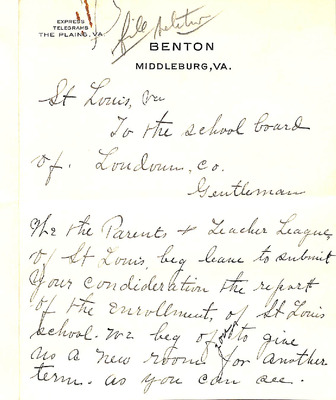 EXPRESS
TELEGRAMS
THE PLAINS, VA.
file petition
BENTON
MIDDLEBURG, VA.
St Louis, Va
To the school board
of. Loudoun, co.
Gentleman
We the Parents + Teacher League,
of St Louis, beg leave to submit
your condideration the report
of the enrollment, of St Louis
school. We beg of you to give
us a new room for another
term. as you can see.